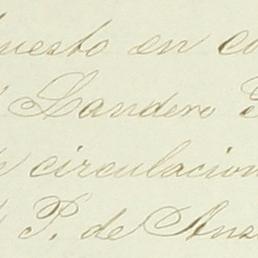 uesto en co
Landero
circulacion
P. de Ans